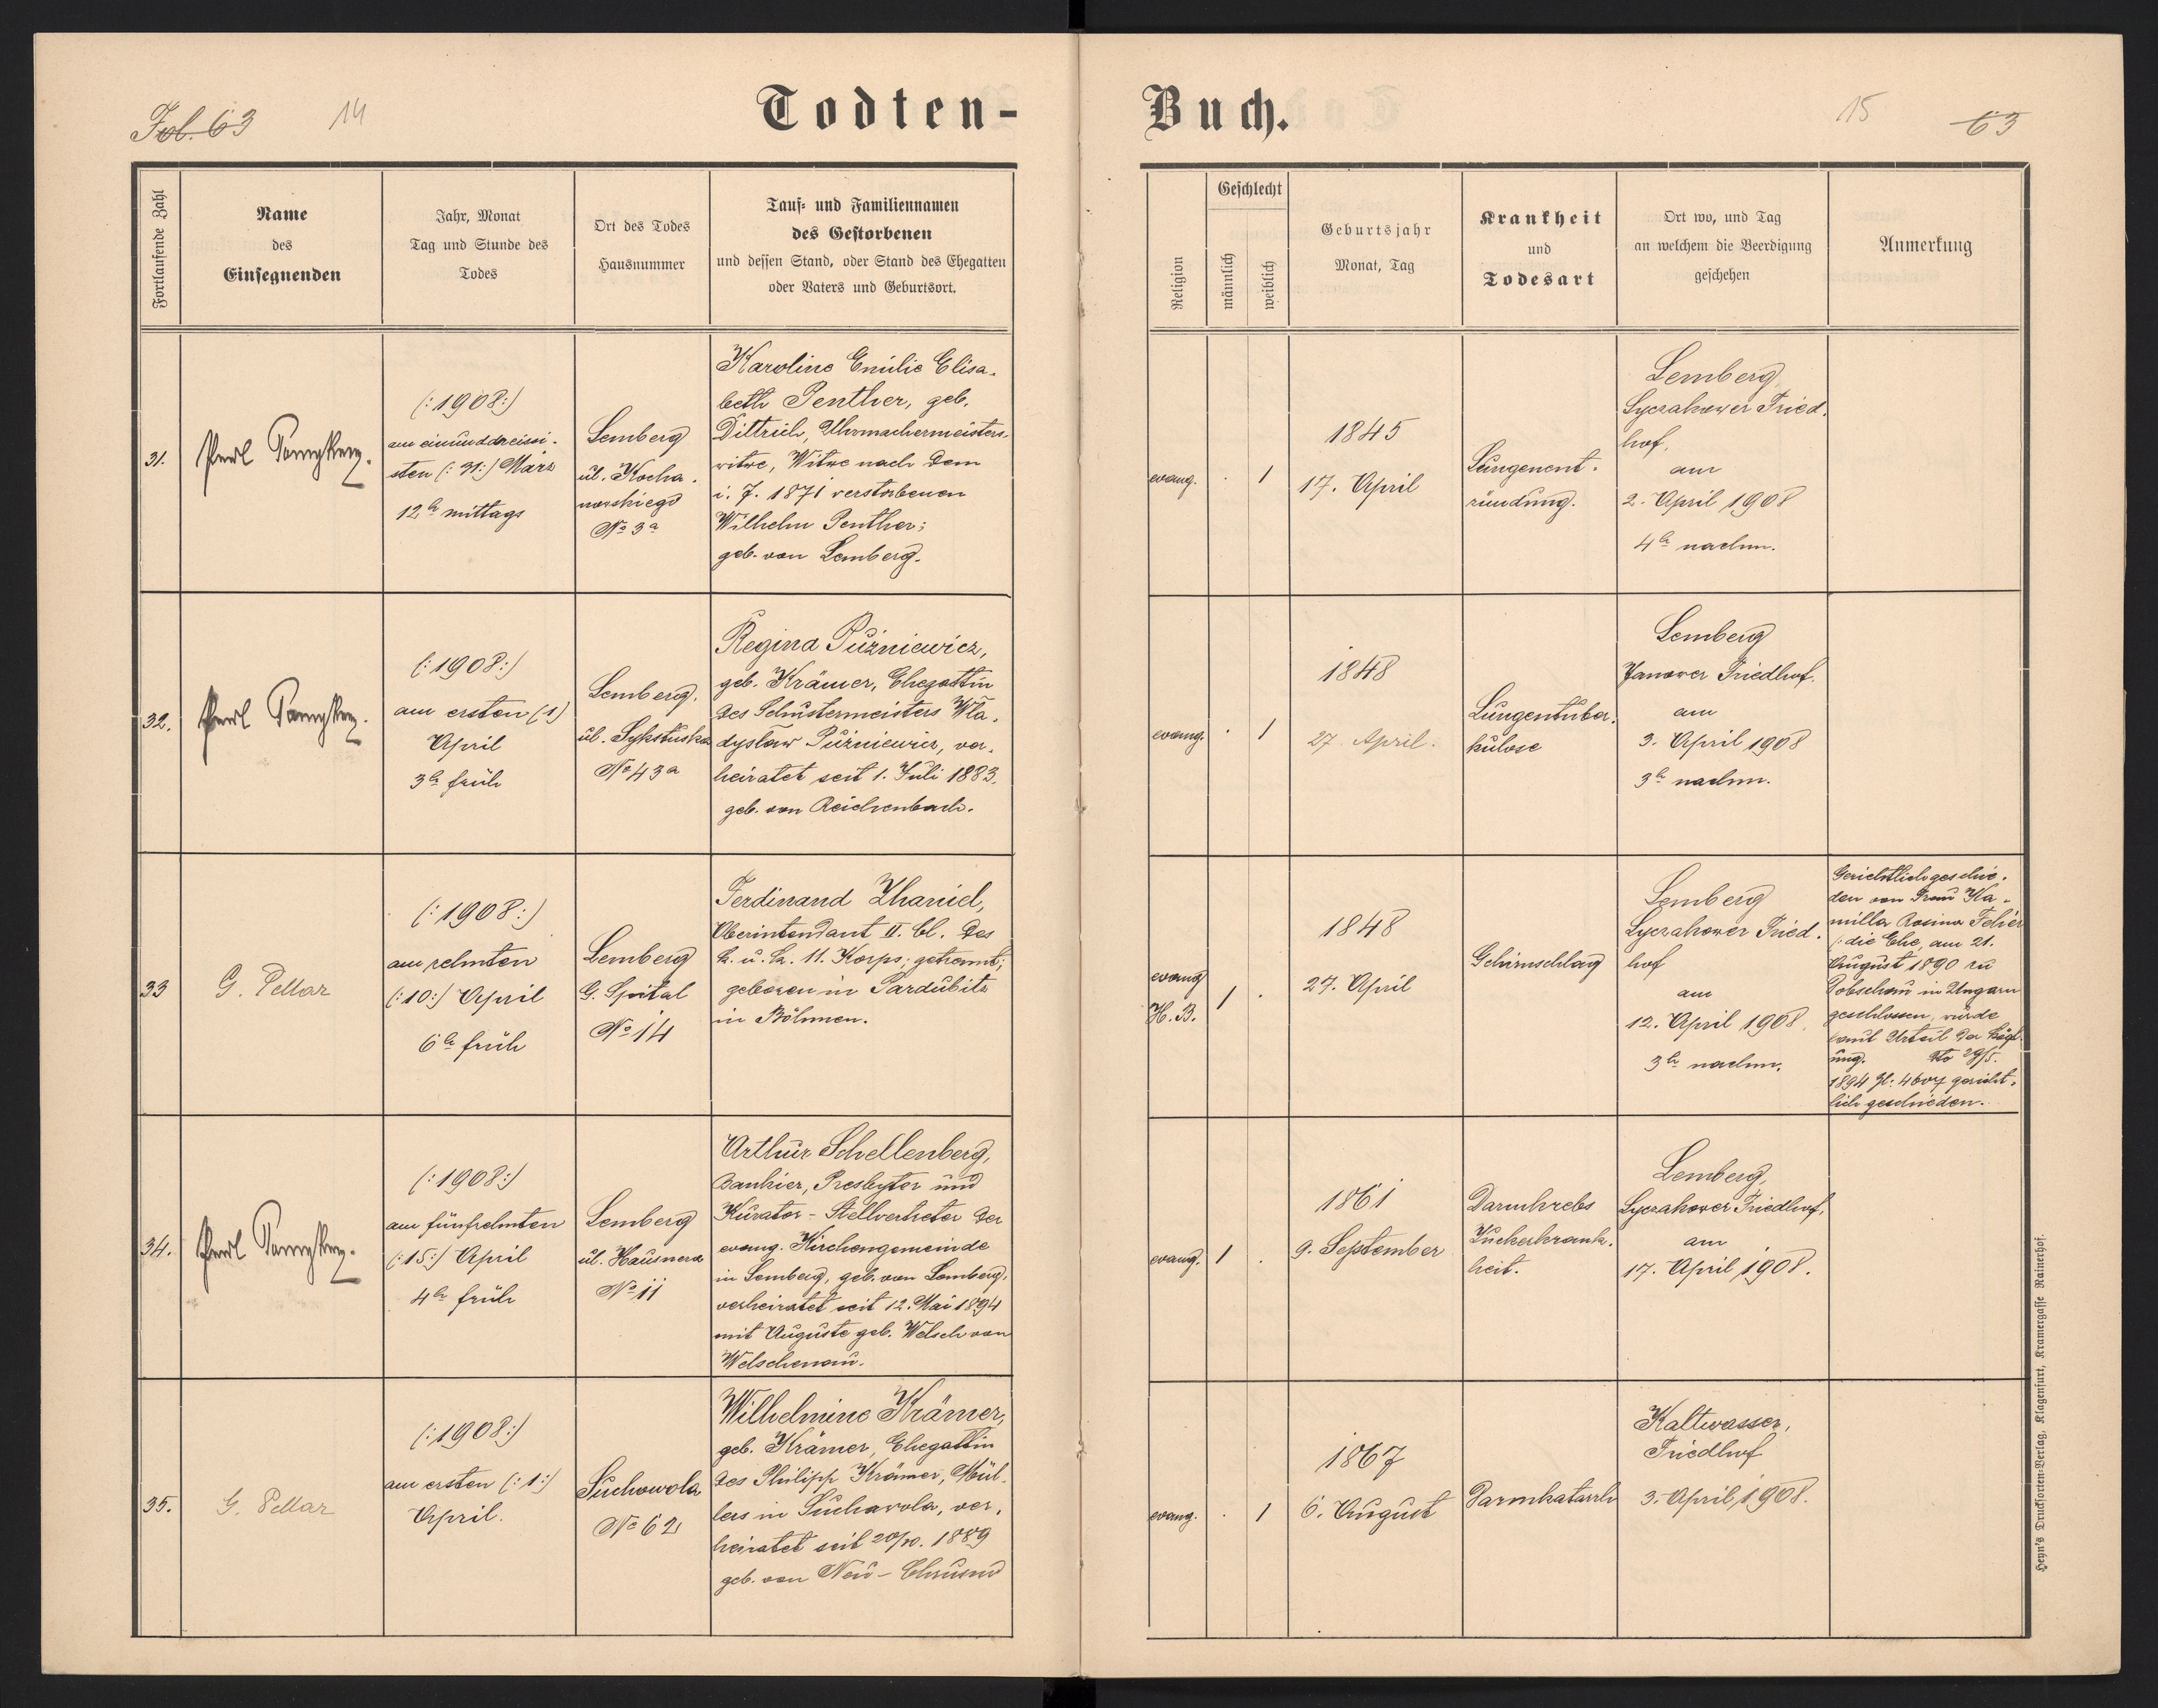 Fol. 63
14
Todten-
Fortlaufende Zahl
Name
des
Einsegnenden
Jahr, Monat
Tag und Stunde des
Todes
Ort des Todes
Hausnummer
Tauf- und Familiennamen
des Gestorbenen
und dessen Stand, oder Stand des Ehegatten
oder Vaters und Geburtsort.
31.
(:1908:)
am einunddreissi-
sten (:31:) März
12h mittags
Lemberg
ul. Kocha-
nowskiego
No 3a
Karoline Emilie Elisa-
beth Penther, geb.
Dittrich, Uhrmachermeisters-
witwe, Witwe nach dem
i. J. 1871 verstorbenen
Wilhelm Penther;
geb. von Lemberg.
32.
(:1908:)
am ersten (1)
April
3h früh
Lemberg.
ul. Sykstuska
No 43a
Regina Puzniewicz,
geb. Krämer, Ehegattin
des Schustermeisters Wla-
dyslaw Puzniewicz, ver-
heiratet seit 1. Juli 1883.
geb. von Reichenbach.
33
G. Pellar
(:1908:)
am zehnten
(:10:) April
6h früh
Lemberg
G. Spital
No 14
Ferdinand Zhaniel,
Oberintendant II. Cl. des
k. u. k. 11. Korps; getrennt;
geboren in Pardubitz
in Böhmen.
34.
(:1908:)
am fünfzehnten
(:15:) April
4h früh
Lemberg
ul. Hausnera
No 11
Arthur Schellenberg,
Bankier, Presbyter und
Kurator-Stellvertreter der
evang. Kirchengemeinde
in Lemberg, geb. von Lemberg,
verheiratet seit 12. Mai 1894
mit Auguste geb. Welsch von
Welschenau.
35.
G. Pellar
(:1908:)
am ersten (:1:)
April.
Suchowola
No 62
Wilhelmine Krämer,
geb. Krämer, Ehegattin
des Philipp Krämer, Mül-
lers in Suchowola, ver-
heiratet seit 20/10. 1889
geb. von Neu-Chrusno
Buch.
15
63
Religion
Geschlecht
männlich
weiblich
Geburtsjahr
Monat, Tag
Krankheit
und
Todesart
Ort wo, und Tag
an welchem die Beerdigung
geschehen
Anmerkung
evang.
.
1
1845
17. April
Lungenent-
zündung.
Lemberg
Lyczakower Fried-
hof.
am
2. April 1908
4h nachm.
evang.
.
1
1848
27. April.
Lungentuber-
kulose
Lemberg
Janower Friedhof.
am
3. April 1908
3h nachm.
evang
H. B.
1
.
1848
27. April
Gehirnschlag
Lemberg
Lyczakower Fried-
hof
am
12. April 1908.
3h nachm.
Gerichtlich geschie-
den von Frau Ka-
milla Rosina Fehér
(:die Ehe, am 21.
August 1890 zu
Dobschau in Ungarn
geschlossen, wurde
laut Urteil der kögl.
ung. dto 29/5.
1894 Zl: gericht-
lich geschieden.
evang.
1
.
1861
9. September
Darmkrebs
Zuckerkrank-
heit.
Lemberg,
Lyczakower Friedhof,
am
17. April 1908.
evang.
.
1
1867
6. August
Darmkatarrh
Kaltwasser,
Friedhof
3. April, 1908.
Heyn's Drucksorten-Verlag, Klagenfurt, Kramergasse Rainerhof.